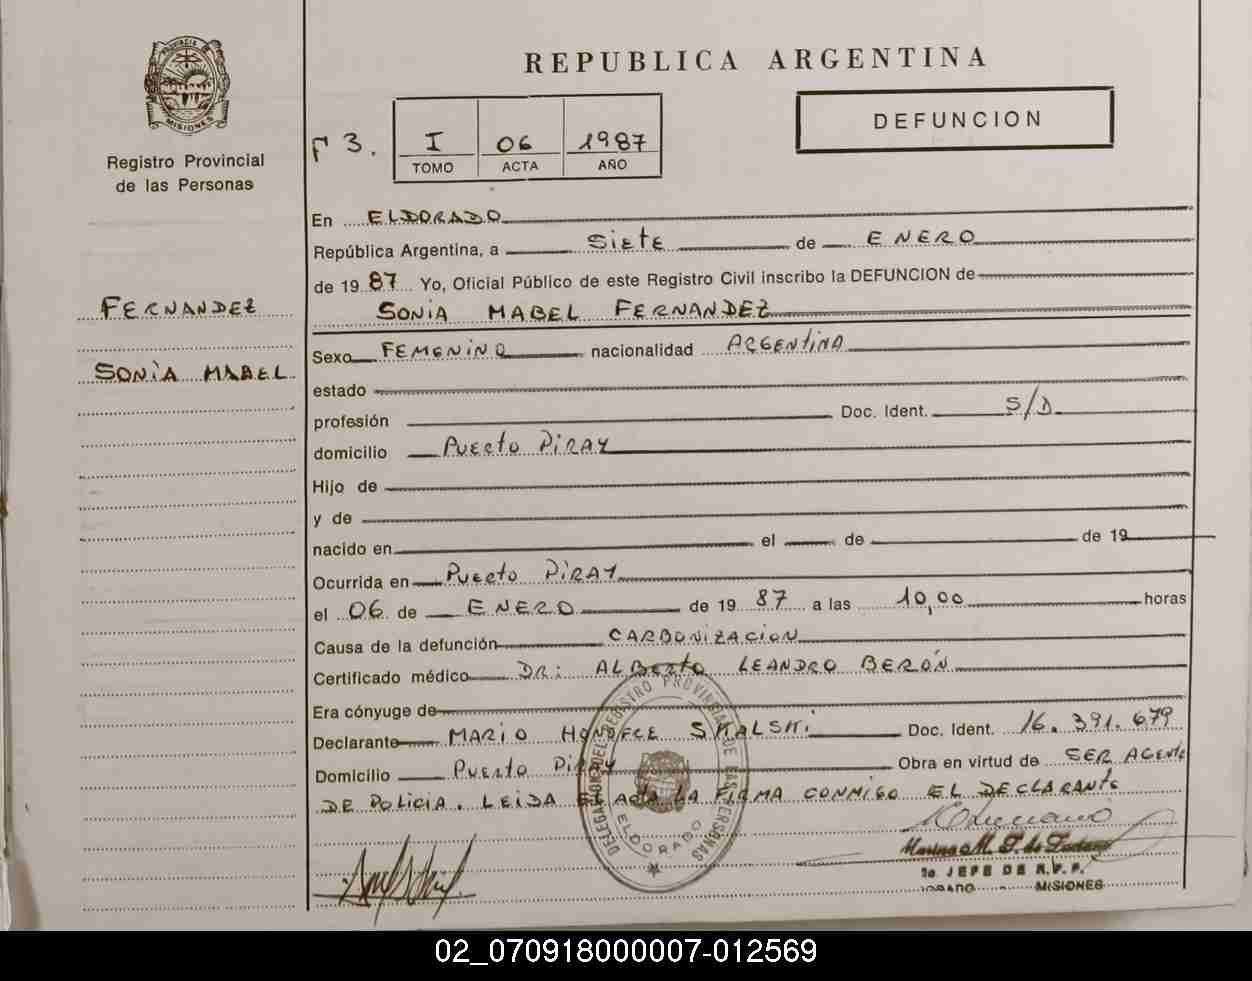 REPUBLICA ARGENTINA
PROVINCIA DE
MISIONES
Registro Provincial
de las Personas
F 3.
I 06 1987
TOMO ACTA AÑO
DEFUNCION
FERNANDEZ
SONIA MABEL
En ELDORADO
República Argentina, a SIETE de ENERO
de 19 87 Yo, Oficial Público de este Registro Civil inscribo la DEFUNCION de
SONIA MABEL FERNANDEZ
Sexo FEMENINO nacionalidad ARGENTINA
estado
profesión Doc. Ident. S/D
domicilio PUERTO PIRAY
Hijo de
y de
nacido en el de de 19
Ocurrida en PUERTO PIRAY
el 06 de ENERO de 19 87 a las 10,00 horas
Causa de la defunción CARBONIZACION
Certificado médico DR: ALBERTO LEANDRO BERÓN
Era cónyuge de
Declarante MARIO SKALSKI Doc. Ident. 16.391.679
Domicilio PUERTO PIRAY Obra en virtud de SER AGENTE
DE POLICIA. LEIDA EL ACTA LA FIRMA CONMIGO EL DECLARANTE
DELEGACION DEL REGISTRO PROVINCIAL DE LAS PERSONAS
ELDORADO
JEFE DE R.P.P.
MISIONES
02_070918000007-012569